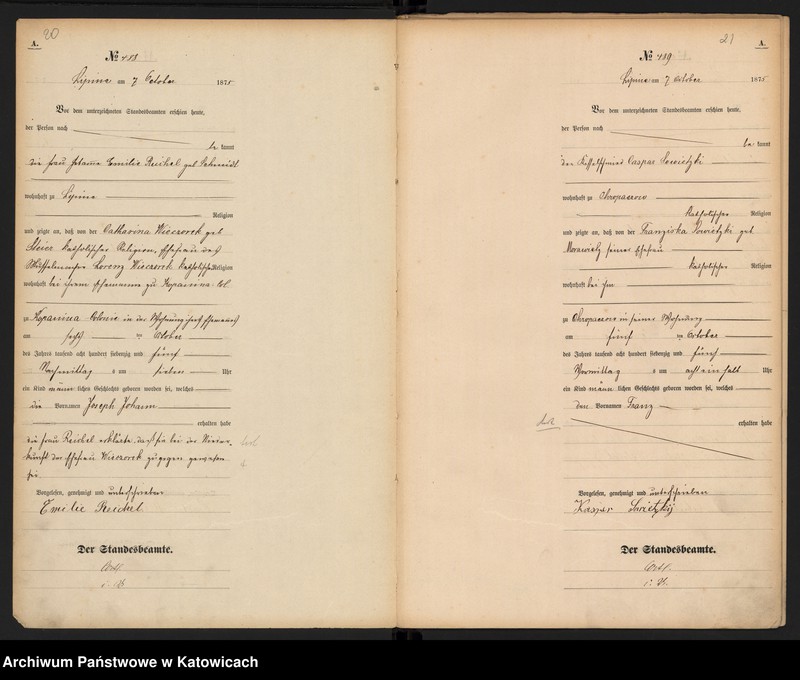 20
A.
№ 488
Lipine am 7 October 1875
Vor dem unterzeichneten Standesbeamten erschien heute,
der Person nach
be kannt
die Frau Hebamme Emilie Reichel geb Schmidt
wohnhaft zu Lipine
Religion
und zeigte an, daß von der Catharina Wieczorek geb
katholischer Religion, Ehefrau des
Lorenz Wieczorek katholischer Religion
wohnhaft bei ihrem Ehemanne zu Kopanina Col.
zu Kopanina Colonie in der Wohnung ihres Ehemannes
am sechs ten October
des Jahres tausend acht hundert siebenzig und fünf
Nachmittag s um sieben Uhr
ein Kind männ lichen Geschlechts geboren worden sei, welches
die Vornamen Joseph Johann
erhalten habe
die Frau Reichel erklärte, daß sie bei der Nieder-
kunft der Ehefrau Wieczorek zugegen gewesen
sei
Vorgelesen, genehmigt und unterschrieben
Emilie Reichel
Der Standesbeamte.
21
A.
№ 489
Lipine am 7 October 1875
Vor dem unterzeichneten Standesbeamten erschien heute,
der Person nach
be kannt
der Kesselschmied Caspar
wohnhaft zu Chropaczow
katholischer Religion
und zeigte an, daß von der Franziska geb
Morawietz seiner Ehefrau
katholischer Religion
wohnhaft bei ihm
zu Chropaczow in seiner Wohnung
am fünf ten October
des Jahres tausend acht hundert siebenzig und fünf
Vormittag s um acht ein halb Uhr
ein Kind männ lichen Geschlechts geboren worden sei, welches
den Vornamen Franz
erhalten habe
Vorgelesen, genehmigt und unterschrieben
Kaspar
Der Standesbeamte.
Archiwum Państwowe w Katowicach